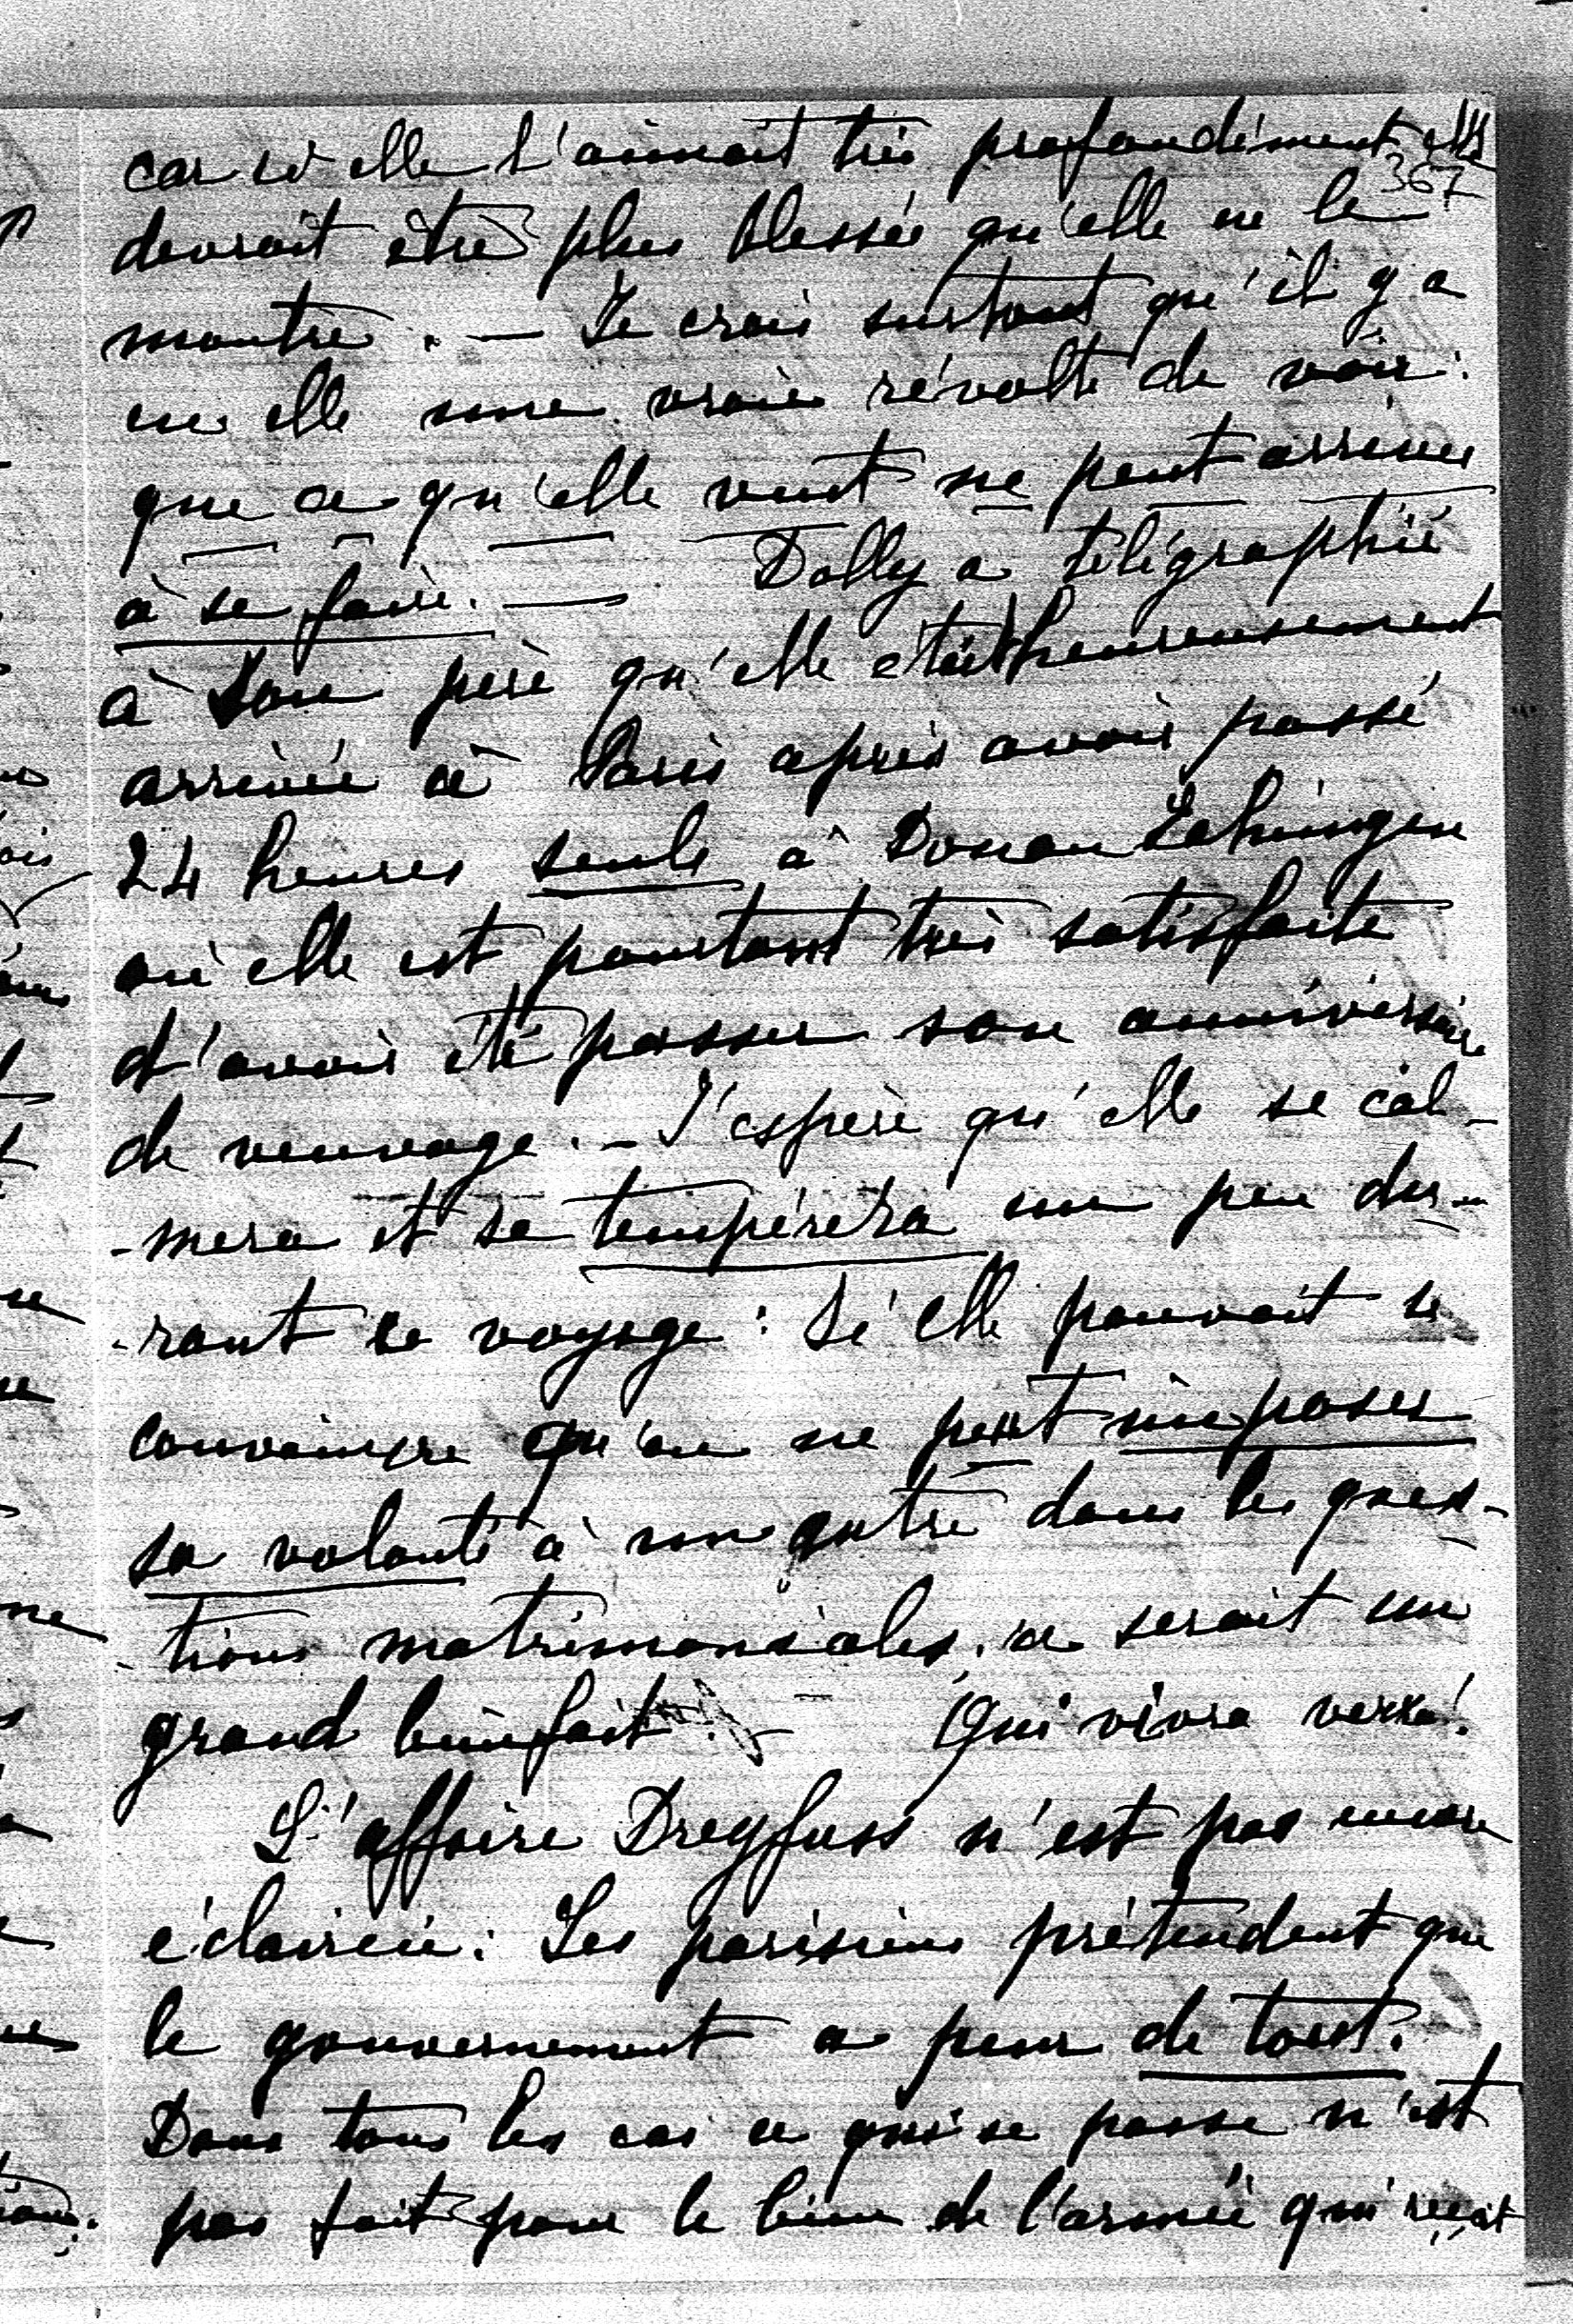 car si elle l'aimait très profondément elle
367
devrait être plus blessée qu'elle ne le
montre. — Je crois surtout qu'il y a
en elle une vraie révolte de voir
que ce qu'elle veut ne peut arriver
à se faire. — Dolly a télégraphié
à son père qu'elle était heureusement
arrivée à Paris après avoir passé
24 heures seule à Donaueschingen
où elle est pourtant très satisfaite
d'avoir été passer son anniversaire
de veuvage. — J'espère qu'elle se cal-
-mera et se tempérera un peu du-
-rant ce voyage : Si elle pouvait se
convaincre qu'on ne peut imposer
sa volonté à un autre dans les ques-
-tions matrimoniales, ce serait un
grand bienfait. — Qui vivra verra!
L'affaire Dreyfuss n'est pas encore
éclaircie : Les parisiens prétendent que
le gouvernement a peur de tout.
Dans tous les cas ce qui se passe n'est
pas fait pour le bien de l'armée qui reçoit